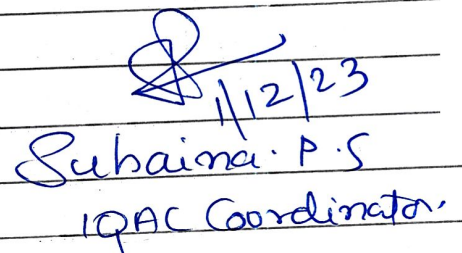 1/12/23
Subaina. P.S
IQAC Coordinator.